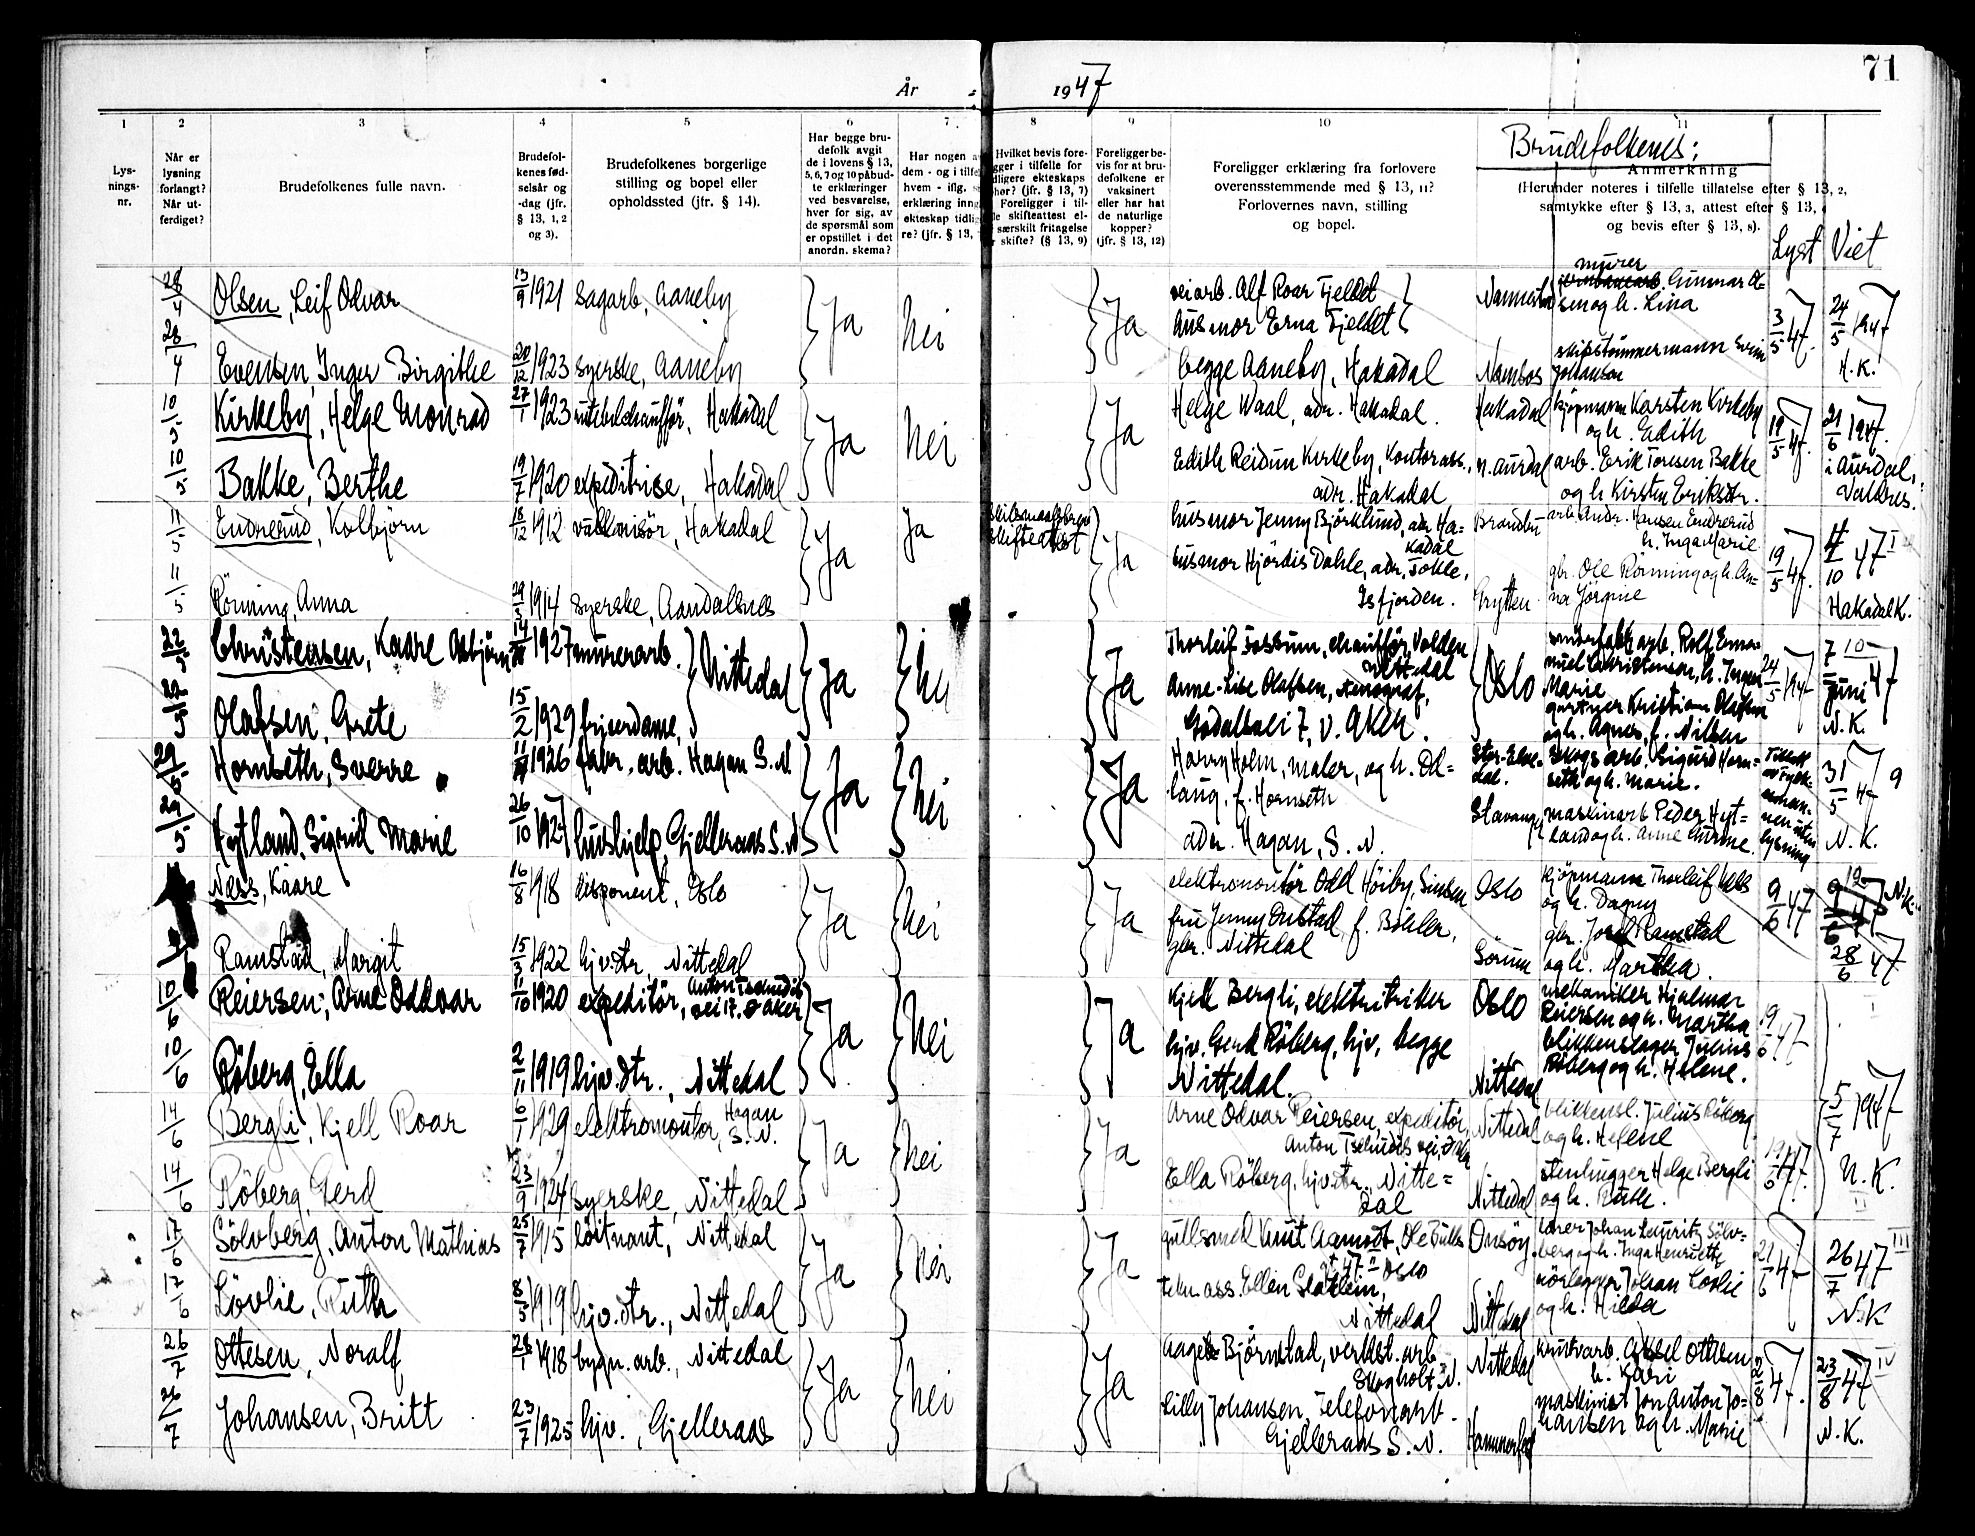 71
År 1947
1 2 3 4 5 6 7 8 9 10 11
Lys-
nings-
nr.
Når er
lysning
forlangt?
Når ut-
ferdiget?
Brudefolkenes fulle navn.
Brudefol-
kenes fød-
selsår og
-dag (jfr.
§ 13, 1, 2
og 3).
Brudefolkenes borgerlige
stilling og bopel eller
opholdssted (jfr. § 14).
Har begge bru-
defolk avgit
de i lovens § 13,
5, 6, 7 og 10 påbud-
te erklæringer
ved besvarelse,
hver for sig, av
de spørsmål som
er opstillet i det
anordn. skema?
Har nogen a
dem - og i tilfe
hvem - iflg. s
erklæring inng
ekteskap tidlig
re? (jfr. § 13,
Hvilket bevis fore-
gger i tilfelle for
dligere ekteskaps
hør? (jfr. § 13, 7)
Foreligger i til-
le skifteattest el-
særskilt fritagelse
skifte? (§ 13, 9)
Foreligger be-
vis for at bru-
defolkene er
vaksinert
eller har hat
de naturlige
kopper?
(jfr. § 13, 12)
Foreligger erklæring fra forlovere
overensstemmende med § 13, 11?
Forlovernes navn, stilling
og bopel.
Brudefolkenes:
Anmerkning
(Herunder noteres i tilfelle tillatelse efter § 13, 2,
samtykke efter § 13, 3, attest efter § 13,
og bevis efter § 13, 8).
Lyst Viet
28/4 Olsen, Leif Odvar 13/9 1921 sagarb, Aaneby Ja Nei Ja
veiarb. Alf Roar Fjeldet
husmor Erna Fjeldet
begge Aaneby, Hakadal
murer
Gunnar Ol-
sen og h. Lina
3/5 47. 24/5 1947
H.K.
28/4 Evensen, Inger Birgithe 20/12 1923 syerske, Aaneby
Namsos skipstømmermann
Johansen
10/5 Kirkeby, Helge Monrad 27/1 1923 rutebilchauffør, Hakadal Ja Nei Ja
Helge Waal, adr. Hakadal. Hakadal kjøpmann Karsten Kirkeby
og h. Edith
19/5 47. 21/6 1947.
i Aurdal,
Valdres.
10/5 Bakke, Berthe 19/7 1920 expeditrise, Hakadal
Edith Reidun Kirkeby, Kontorass., N. Aurdal arb. Erik Toresen Bakke
adr. Hakadal og h Kirsten Eriksdtr.
11/5 Endrerud, Kolbjörn 18/12 1912 Hakadal Ja Ja
skifteattest Ja
husmor Jenny Björklund, adr Ha-
kadal
Brandbu arb. Andr. Hansen Endrerud
h. Inga Marie
19/5 47. 4/10 47 I
Hakadal K.
11/5 Rönning, Anna 29/5 1914 syerske, Aandalsnes
husmor Hjördis Dahle, adr. Tokle,
Isfjorden. Grytten gbr. Ole Rönning og h. An-
na Jörgine
22/5 Christensen, Kaare Asbjörn 14/ 1927 murerarb. Nittedal Ja Nei Ja
Thorleif Fossum, chauffør, Volden
Nittedal
Oslo Rolf Ema-
nuel Christensen, h. Inger
Marie
24/5 1947 7/ juni 47
N.K.
22/5 Olafsen, Grete 15/2 1929 friserdame,
Anne-Lise Olafsen, stenograf,
Godalsvei 7, V. Aker.
gartner Kristian Olafsen
og h. Agnes, f. Nilsen
29/5 Hornseth, Sverre 11/ 1926 fabr. arb. Hagan S. N. Ja Nei Ja
Harry Holm, maler, og h. Od-
laug, f. Hornseth
adr. Hagan, S. N.
Stor-Elve-
dal. skogsarb. Sigurd Horn-
seth og h. Marie.
31/5 47 9
N. K.
29/5 Hytland, Sigrid Marie 26/10 1927 hushjelp, Gjelleraas S. N
Stavanger maskinarb Peder Hyt-
land og h. Anne Aurine.
lysning
Næss, Kaare 16/8 1918 disponent, Oslo Ja Nei Ja
elektromontör Odd Höiby, Sinsen
fru Jenny Onstad, f. Böhler,
gbr. Nittedal
Oslo kjöpmann Thorleif Næss
og h. Dagny
9/6 47 N.K.
28/6 47
Ramstad, Margit 15/3 1922 hjv. dtr, Nittedal
Sörum gbr. Josef Ramstad
og h. Martha.
10/6 Reiersen, Arne Oddvar 11/10 1920 expeditör, Anton Tschudis
vei 17. Ö Aker Ja Nei Ja
Kjell Bergli, elektritriker
hjv. Gerd Röberg, hjv, begge
Nittedal.
Oslo mekaniker Hjalmar
Reiersen og h. Martha
19/6 47
10/6 Röberg, Ella 2/11 1919 hjv. dtr., Nittedal
Nittedal blikkenslager Julius
Röberg og h. Helene.
5/7 1947
N. K.
II
14/6 Bergli, Kjell Roar 6/1 1929 elektromontör, Hagan
S. N. Ja Nei Ja
Arne Odvar Reiersen, expeditör,
Anton Tschudis vei,
Nittedal blikkensl. Julius Röberg
og h. Helene
19/6 47.
14/6 Röberg, Gerd 23/9 1924 syerske, Nittedal
Ella Röberg, hjv. dtr. Nitte-
dal Nittedal stenhugger Helge Bergli
og h. Ruth.
17/6 Sölvberg, Anton Mathias 25/7 1915 löitnant, Nittedal Ja Nei Ja
gullsmed Knut Aamodt, Ole Bulls
gt 47 II Oslo
Onsöy. lærer Johan Lauritz Sölv-
berg og h. Inga Henriette
21/6 47 26/7 47 III
N.K
17/6 Lövlie, Ruth 8/5 1919 hjv. dtr., Nittedal
tekn ass. Ellen
Nittedal Nittedal rörlegger Johan Lövlie
og h. Hilda
26/7 Ottesen, Noralf 28/1 1918 bygn. arb., Nittedal Ja Nei Ja
Aage Björnstad, verkst. arb
Skogholt N.
Nittedal krutvarb. Aksel Ottesen
h. Kari
2/8 47. 23/8 47 IV
N.K.
26/7 Johansen, Britt 23/7 1925 hjv., Gjelleraas
Lilly Johansen, Telefonarb.
Gjelleraas S. N. Hammerfest maskinist Jon Anton Jo-
hansen og h. Marie